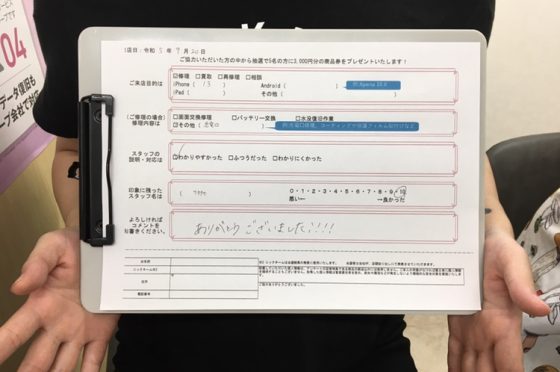 ご来店日：令和 5 年 9 月 20 日
ご協力いただいた方の中から抽選で5名の方に3,000円分の商品券をプレゼントいたします！
ご来店目的は
☑修理 □買取 □再修理 □相談
iPhone ( 13 ) Android ( )
iPad ( ) その他 ( )
(ご修理の場合)
修理内容は
□画面交換修理 □バッテリー交換 □水没復旧作業
☑その他 (
スタッフの
説明・対応は
☑わかりやすかった □ふつうだった □わかりにくかった
印象に残った
スタッフ名は
0・1・2・3・4・5・6・7・8・9・10
悪い← →良かった
よろしければ
コメントを
お書きください。
ありがとうございました!!!!
お名前
ニックネーム
住所
電話番号
〒
ご協力ありがとうございました。
04
データ復旧も